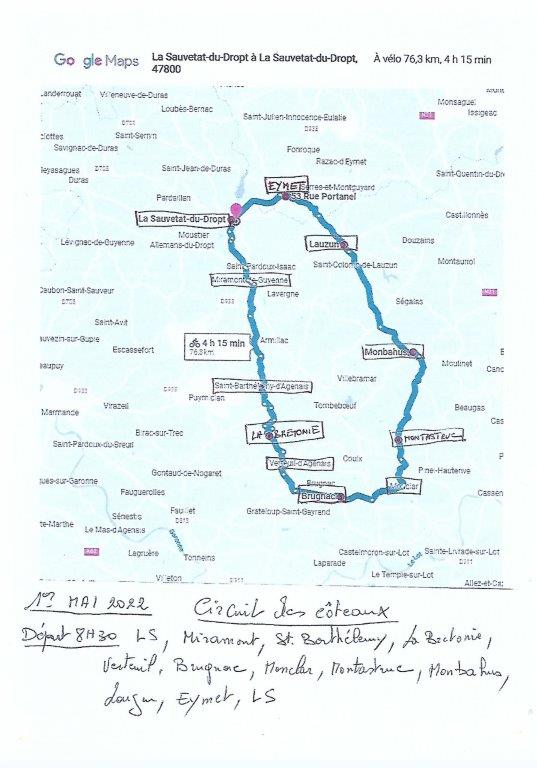 Google Maps
La Sauvetat-du-Dropt à La Sauvetat-du-Dropt, 47800
À vélo 76,3 km, 4 h 15 min
Villeneuve-de-Duras
Loubès-Bernac
Monsaguel
Issigeac
Saint-Julien-Innocence-Eulalie
D933
Saint-Sernin
Savignac-de-Duras
Fonroque
Razac-d'Eymet
Saint-Jean-de-Duras
Duras
Pardaillan
EYMET
Serres-et-Montguyard
53 Rue Portanel
La Sauvetat-du-Dropt
Castillonnès
Moustier
Lévignac-de-Guyenne
Allemans-du-Dropt
Lauzun
Douzains
Saint-Pardoux-Isaac
Saint-Colomb-de-Lauzun
Montauriol
Miramont-de-Guyenne
Lavergne
D933
Ségalas
Saint-Avit
4 h 15 min
76,3 km
Armillac
Escassefort
Monbahus
Moulinet
Saint-Barthélemy-d'Agenais
Villebramar
Puymiclan
Virazeil
Tombebœuf
Beaugas
Marmande
LA BRETONIE
MONTASTRUC
Birac-sur-Trec
Saint-Pardoux-du-Breuil
Verteuil-d'Agenais
Coulx
Gontaud-de-Nogaret
Pinel-Hauterive
Brugnac
Monclar
Fauguerolles
Brugnac
Grateloup-Saint-Gayrand
Sénestis
Fauillet
D813
Le Mas-d'Agenais
Garonne
Castelmoron-sur-Lot
Sainte-Livrade-sur-Lot
Lagruère
Tonneins
Laparade
Le Lot
D911
Villeton
Le Temple-sur-Lot
1er MAI 2022
Circuit des côteaux
Départ 8H30 LS, Miramont, St. Barthélemy, La Bretonie,
Verteuil, Brugnac, Monclar, Montastruc, Monbahus,
Lauzun, Eymet, LS